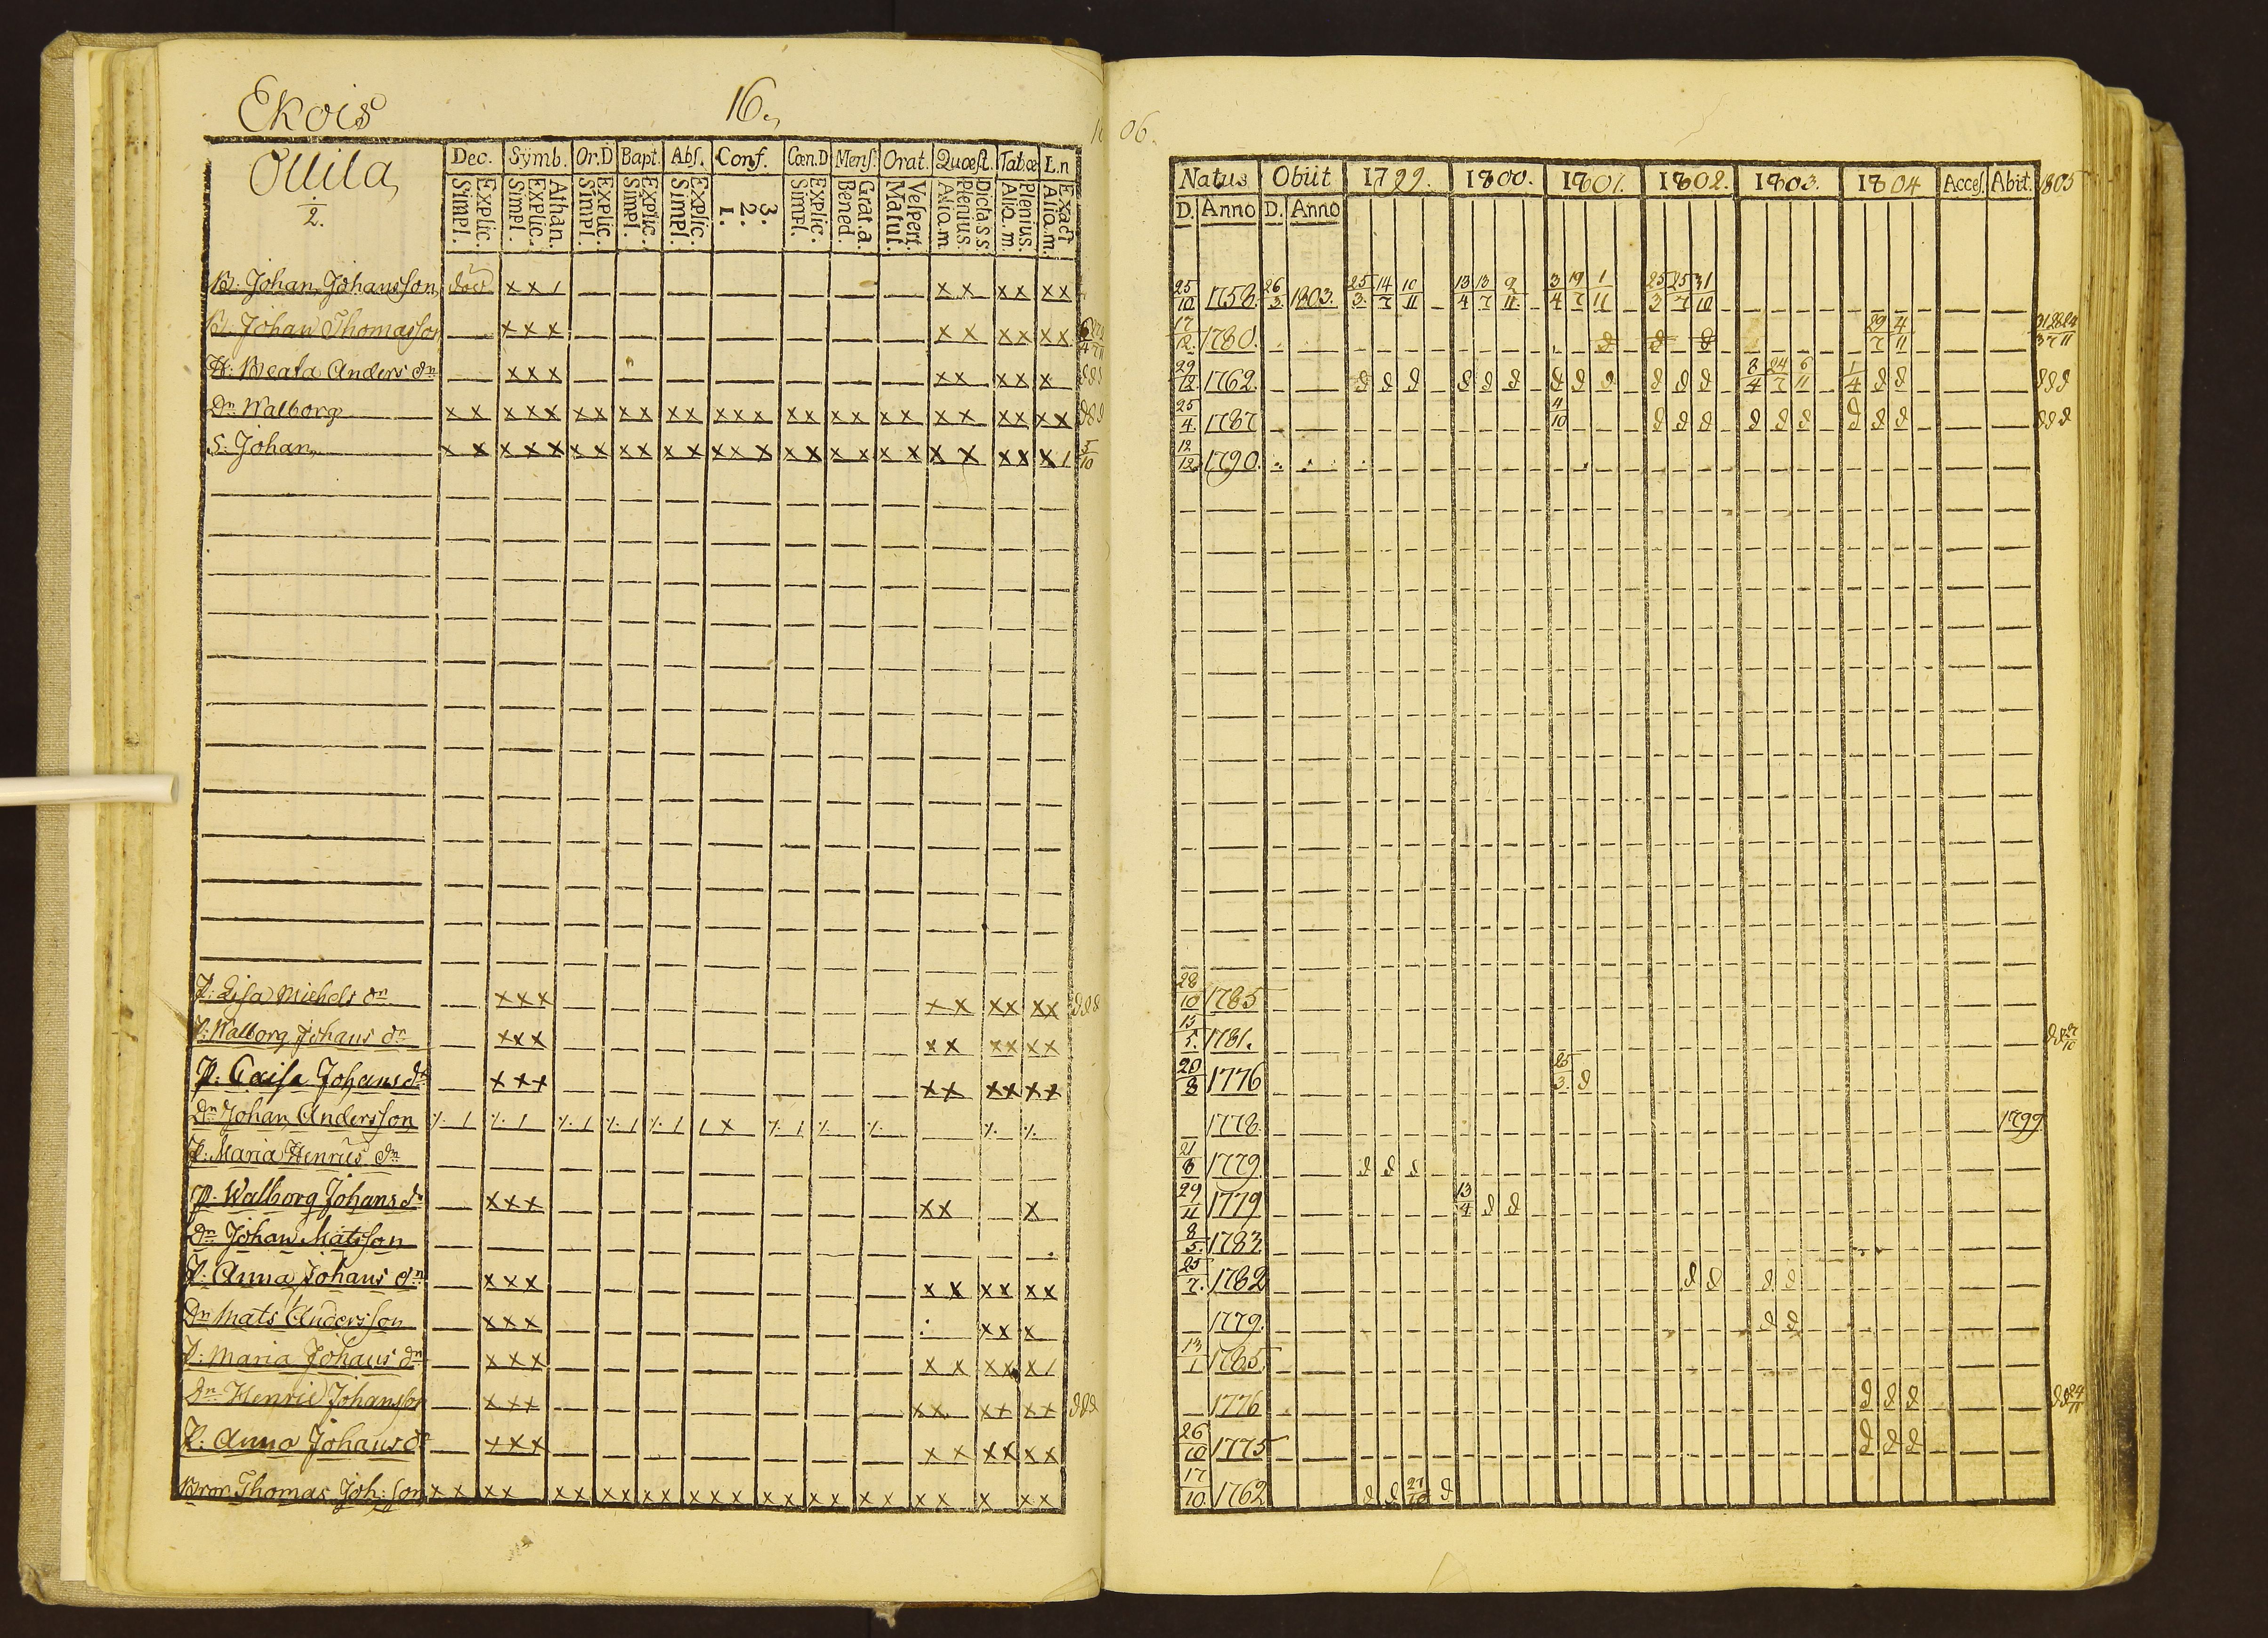 Ekois
16.
Ollila
2.
Dec. Symb. Or.D Bapt. Abs. Conf. Cœn.D Mens. Orat. Quæst. Tabœ L.n
Explic. Simpl. Athan. Explic. Simpl. Explic. Simpl. Explic. Simpl. Explic. Simpl. 3. 2. 1. Explic. Simpl. Grat.a. Bened. Vespert. Matut. Dictass. Plenius. Aliq.m. Plenius. Aliq.m. Exact Aliq.m.
B: Johan Johansson död x x / x x x x x x
B: Johan Thomasson x x x x x x x x x
H: Beata Anders dn x x x x x x x x
Dn Walborg x x x x x x x x x x x x x x x x x x x x x x x x x x
S: Johan x x x x x x x x x x x x x x x x x x x x x x x x x /
P: Lisa Michels dn x x x x x x x x x
P: Walborg Johans dr x x x x x x x x x
P: Caisa Johans dr x x x x x x x x x
Dn Johan Andersson
P: Maria Henrics dn
P. Walborg Johans dr x x x x x x
Dn Johan Matsson
P: Anna Johans dn x x x x x x x x x
Dn Mats Andersson x x x x x x
P: Maria Johans dn x x x x x x x x /
Dn Henric Johansson x x x x x x x x x
P: Anna Johans dr x x x x x x x x x
Bror Thomas Joh:son x x x x x x x x x x x x x x x x x x x x x x x x
06.
Natus Obiit 1799. 1800. 1801. 1802. 1803. 1804 Acces. Abit. 1805
D. Anno D. Anno
25/10 1758. 26/3 1803. 25/3 14/7 10/11 13/4 13/7 2/11 3/4 19/7 1/11 25/3 25/7 31/10
17/12 1780. d d d 29/7 4/11 31/3 28/7 24/11
29/12 1762. d d d d d d d d d d d d 8/4 24/7 6/11 1/4 d d d d d
25/4 1787 4/10 d d d d d d d d d d d d
12/12 1790.
28/10 1785
15/5. 1781. d d 27/10
20/3 1776 25/3 d
1778. 1799
21/8 1779. d d d
29/11 1779 13/4 d d
8/5. 1783
25/7. 1782 d d d d
1779. d d
13/1 1785.
1776 d d d d d 24/11
26/10 1775 d d d
17/10 1762 d d 27/10 d